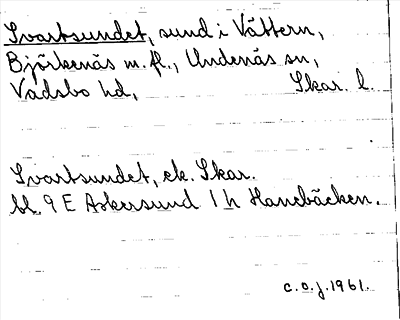 Svartsundet, sund i Vättern,
Björkenäs m. fl., Undenäs sn,
Vadsbo hd, Skar. l.
Svartsundet, ek. Skar.
bl. 9 E Askersund 1 h Hanebäcken.
c.o.j. 1961.